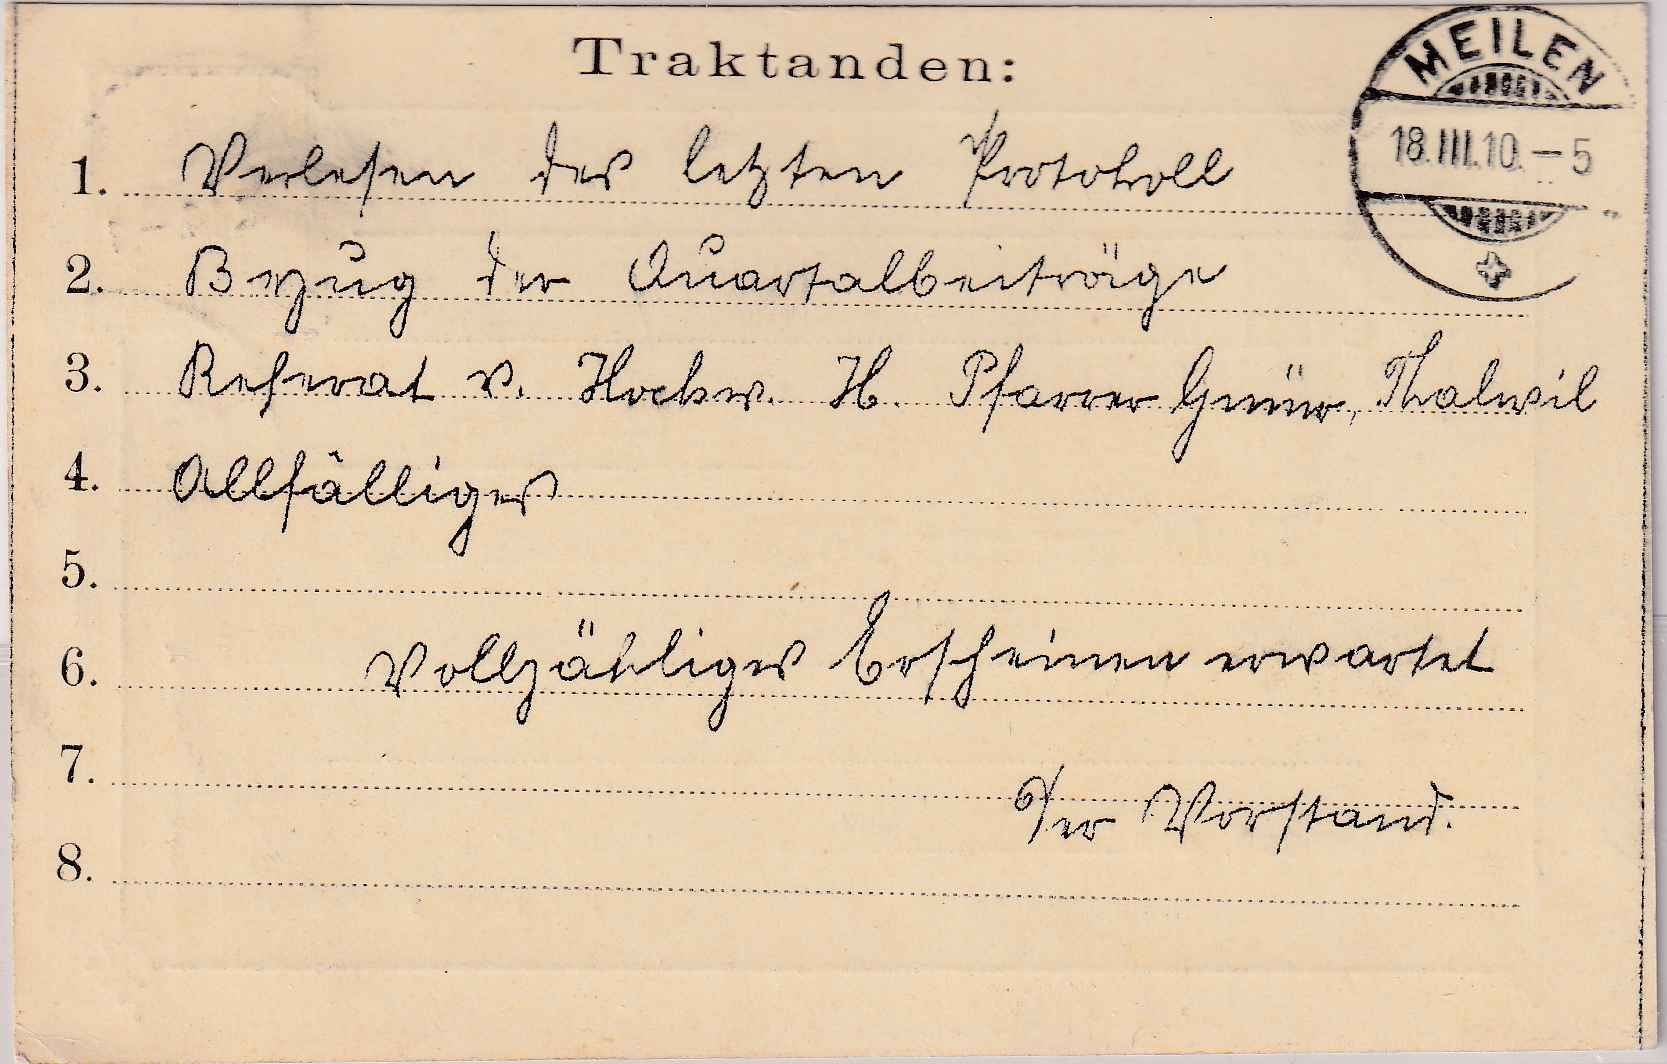 Traktanden:
MEILEN
18.III.10.–5
1. Verlesen des letzten Protokoll
2. Bezug der Quartalbeiträge
3. Referat v. Hochw. H. Pfarrer Gmür, Thalwil
4. Allfälliges
5.
6. Vollzähliges Erscheinen erwartet
7.
Der Vorstand.
8.